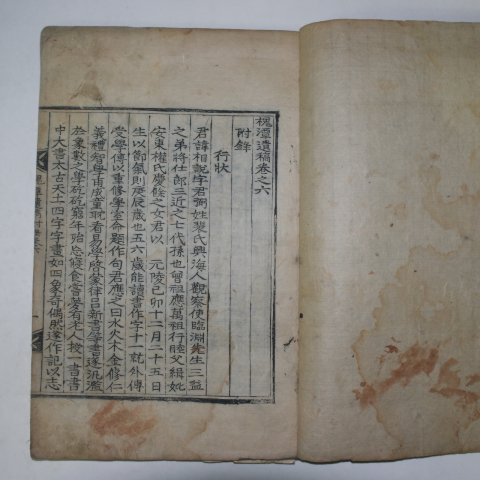 槐潭遺稿卷之六
附錄
行狀
君諱相說字君弼姓裴氏興海人觀察使臨淵先生三益
之弟將仕郎三近之七代孫也曾祖應萬祖行睦父緝妣
安東權氏慶餘之女君以 元陵己卯十二月二十五日
生以節氣則庚辰歲也五六歲能讀書作字十一就外傅
受學傅以重修學室命題作句君應之曰水火木金修仁
義禮智學甫成童耽看易學啓蒙律呂新書等書遂汎濫
於象數之學矻矻窮年殆忘寢食嘗夢有老人授一書書
中大書太古天土四字字畫如四象奇偶然遂作記以志